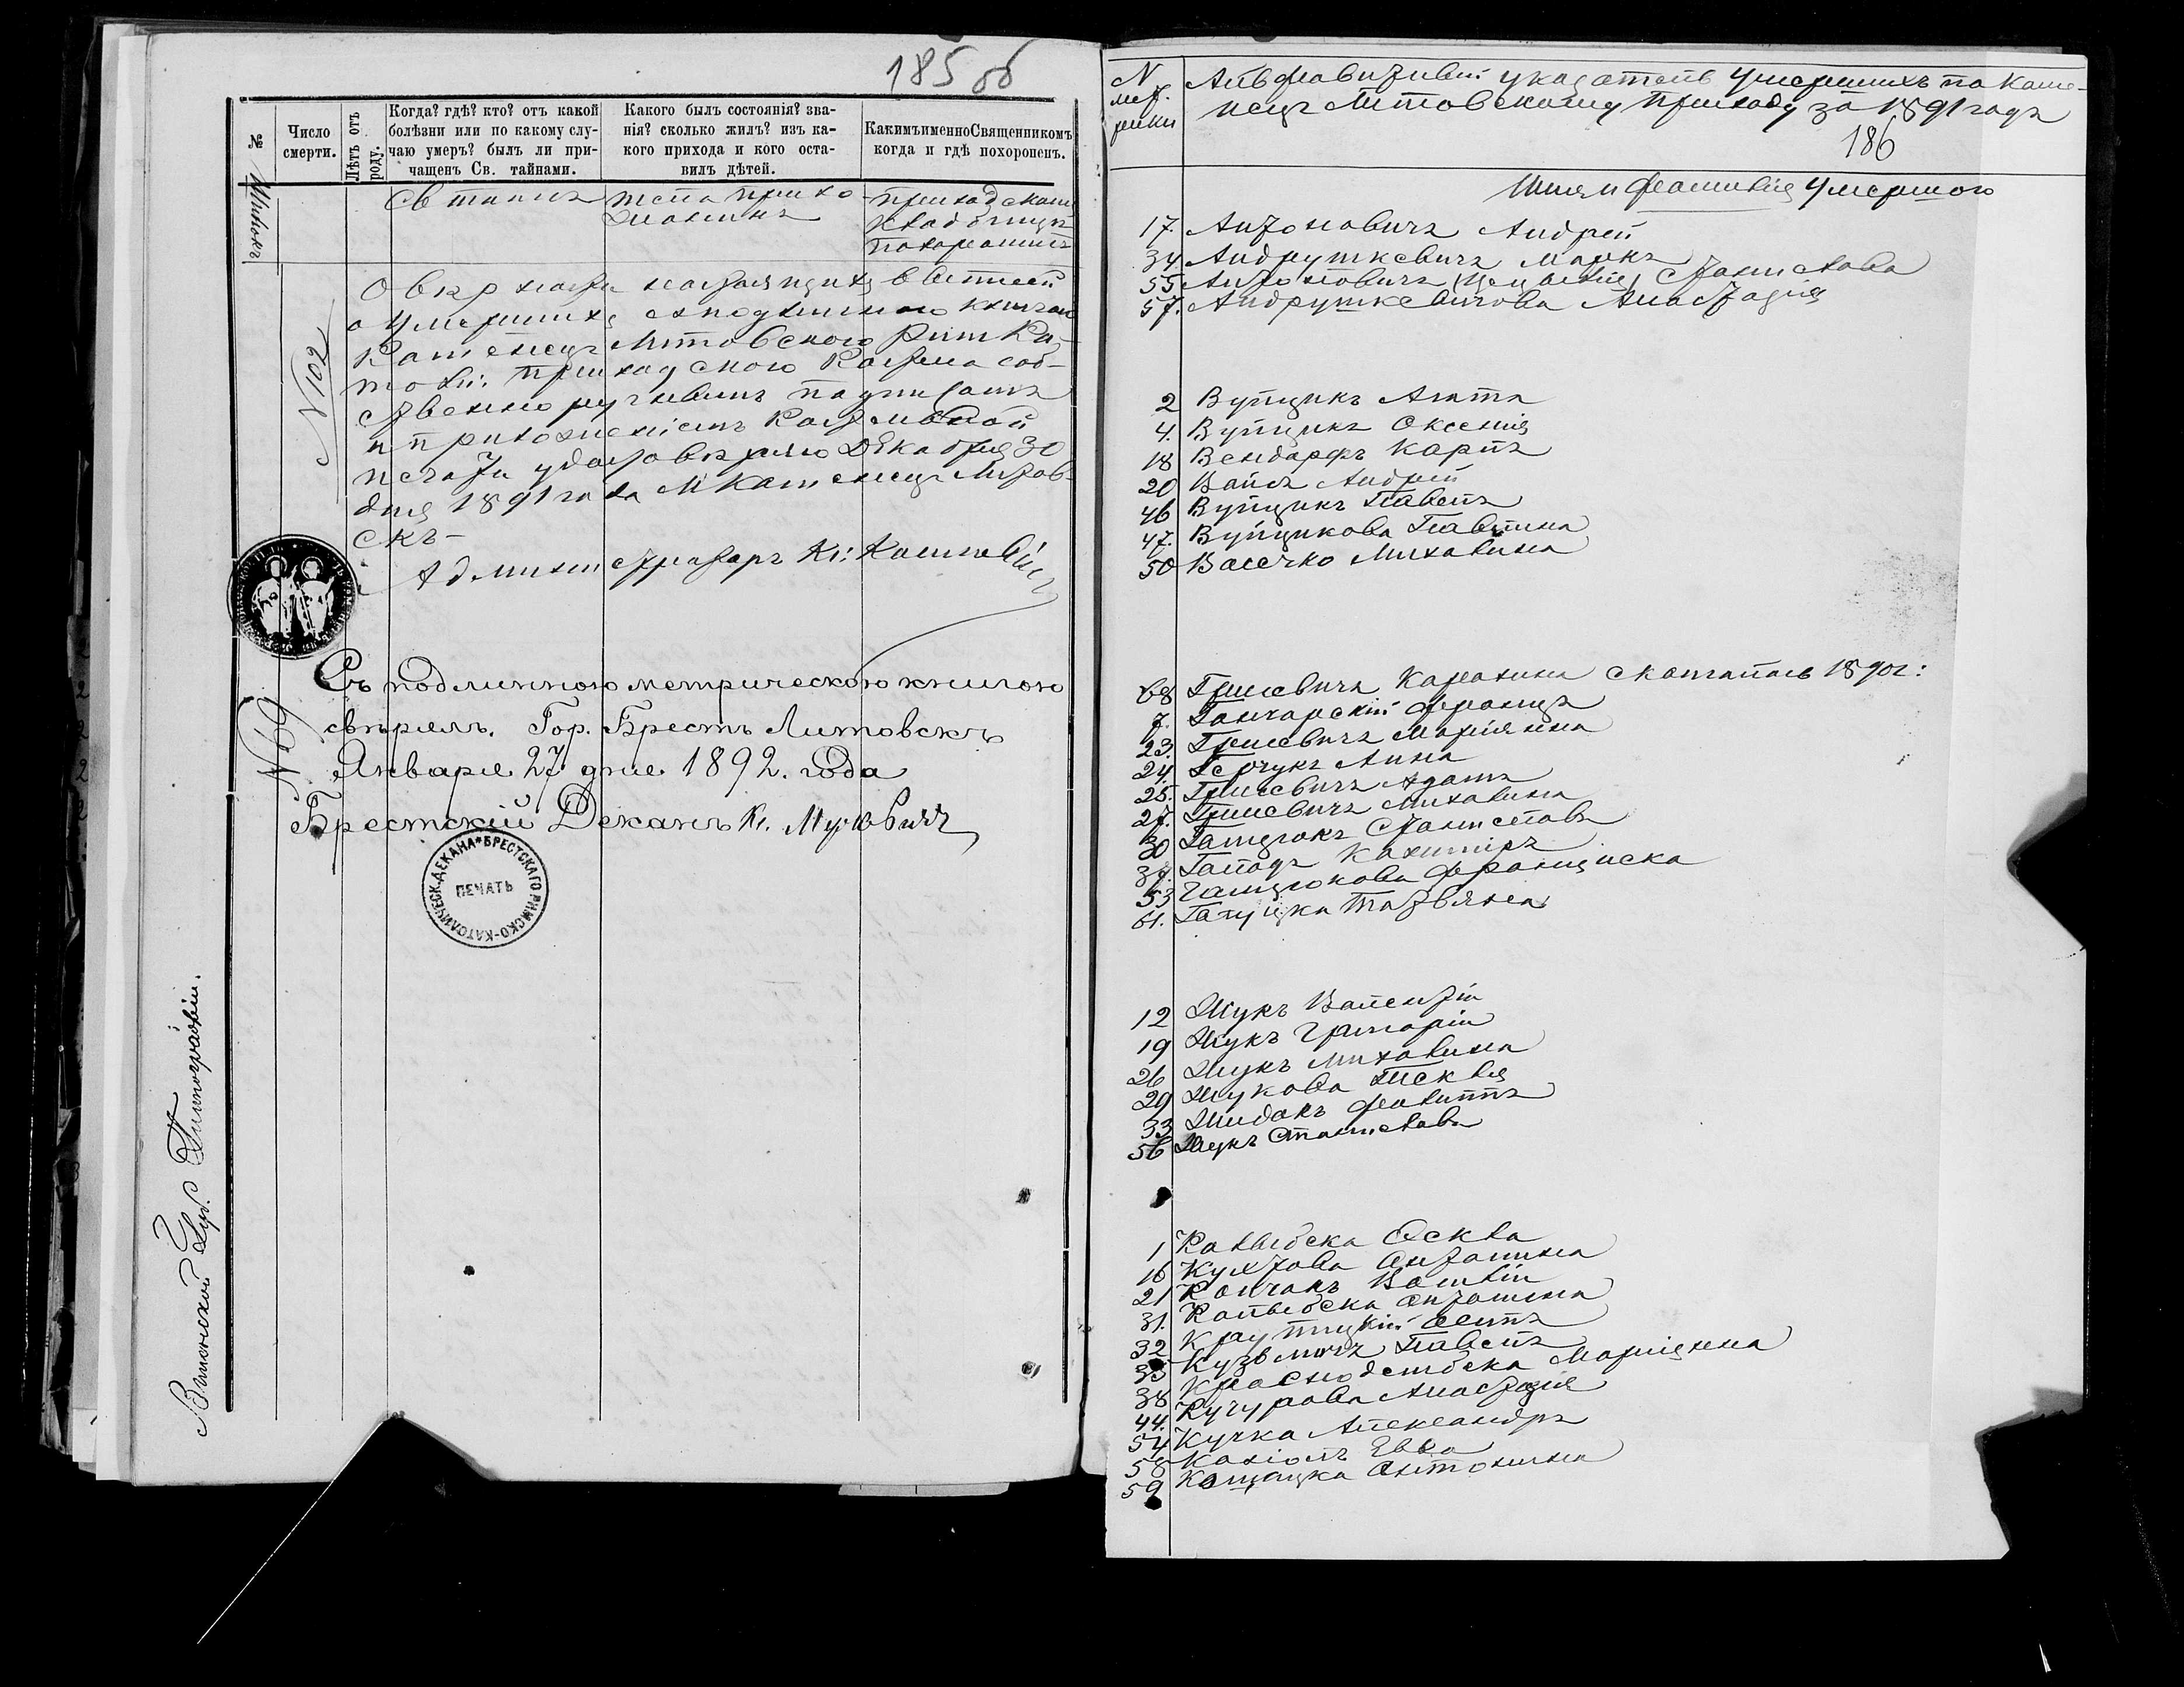 185 об
№
Число смерти.
Лѣтъ отъ роду.
Когда? гдѣ? кто? отъ какой болѣзни или по какому случаю умеръ? былъ ли причащенъ Св. тайнами.
Какого былъ состоянія? званія? сколько жилъ? изъ какого прихода и кого оставилъ дѣтей.
Какимъ именно Священникомъ когда и гдѣ похороненъ.
Св тайнъ
тела прихо
жанинъ
приходскомъ
кладбищѣ
похороненъ
N 102
О вѣрности настоящихъ
о умершихъ съ подлинною книгою
Каменецъ Литовского Рим Ка-
толи: приходского Костела соб-
ственноручнымъ подписомъ
и приложеніемъ Костельной
печати удостовѣряю Декабря 30
дня 1891 года М Каменецъ Литов-
скъ-
Администраторъ Кс:
N 69
Съ подлинною метрическою книгою
свѣрялъ. Гор. Брестъ Литовскъ
Января 27 дня 1892. года
Брестскій Деканъ Кс.
БРЕСТСКАГО РИМСКО-КАТОЛИЧЕСК. ДЕКАНА
ПЕЧАТЬ
Виленской Губ. Типографіи.
N метрики
Алфавитный указатель умершихъ по Каме-
нецъ Литовскому приходу за 1891 годъ
186
Имя и фамилія умершого
17. Антоновичъ Андрей
34 Андрушкевичъ Маркъ
55 Антоновичъ Станислава
57. Андрушкевичова Анастазія
2 Вуйцикъ Агата
4. Вуйцикъ Оксенія
18 Вендорфъ Карлъ
20 Андрей
46 Вуйцикъ Павелъ
47. Вуйцикова Павлина
50 Васечко Михалина
68 Гриневичъ Каролина скончалась 1890 г:
7. Гончарскій Францъ
23. Гриневичъ Маріянна
24. Анна
25. Гриневичъ Адамъ
27. Гриневичъ Михалина
30 Гацюкъ Станиславъ
37. Казимиръ
53 Гацюкова Франциска
61. Татьяна
12 Жукъ Валентій
19 Жукъ Григорій
26 Жукъ Михалина
29 Жукова Текля
33 Жидокъ Филиппъ
56 Жукъ Станиславъ
1 Ковальска Фекла
16 Кухтова Антонина
21 Кончакъ
31. Ковальска Антонина
32 Крутицкій
35 Кузьмичъ Павелъ
38 Краснодембска Маріянна
44. Кучурова Анастазія
54 Кучка Александръ
58 Козіолъ Евва
59 Антонина